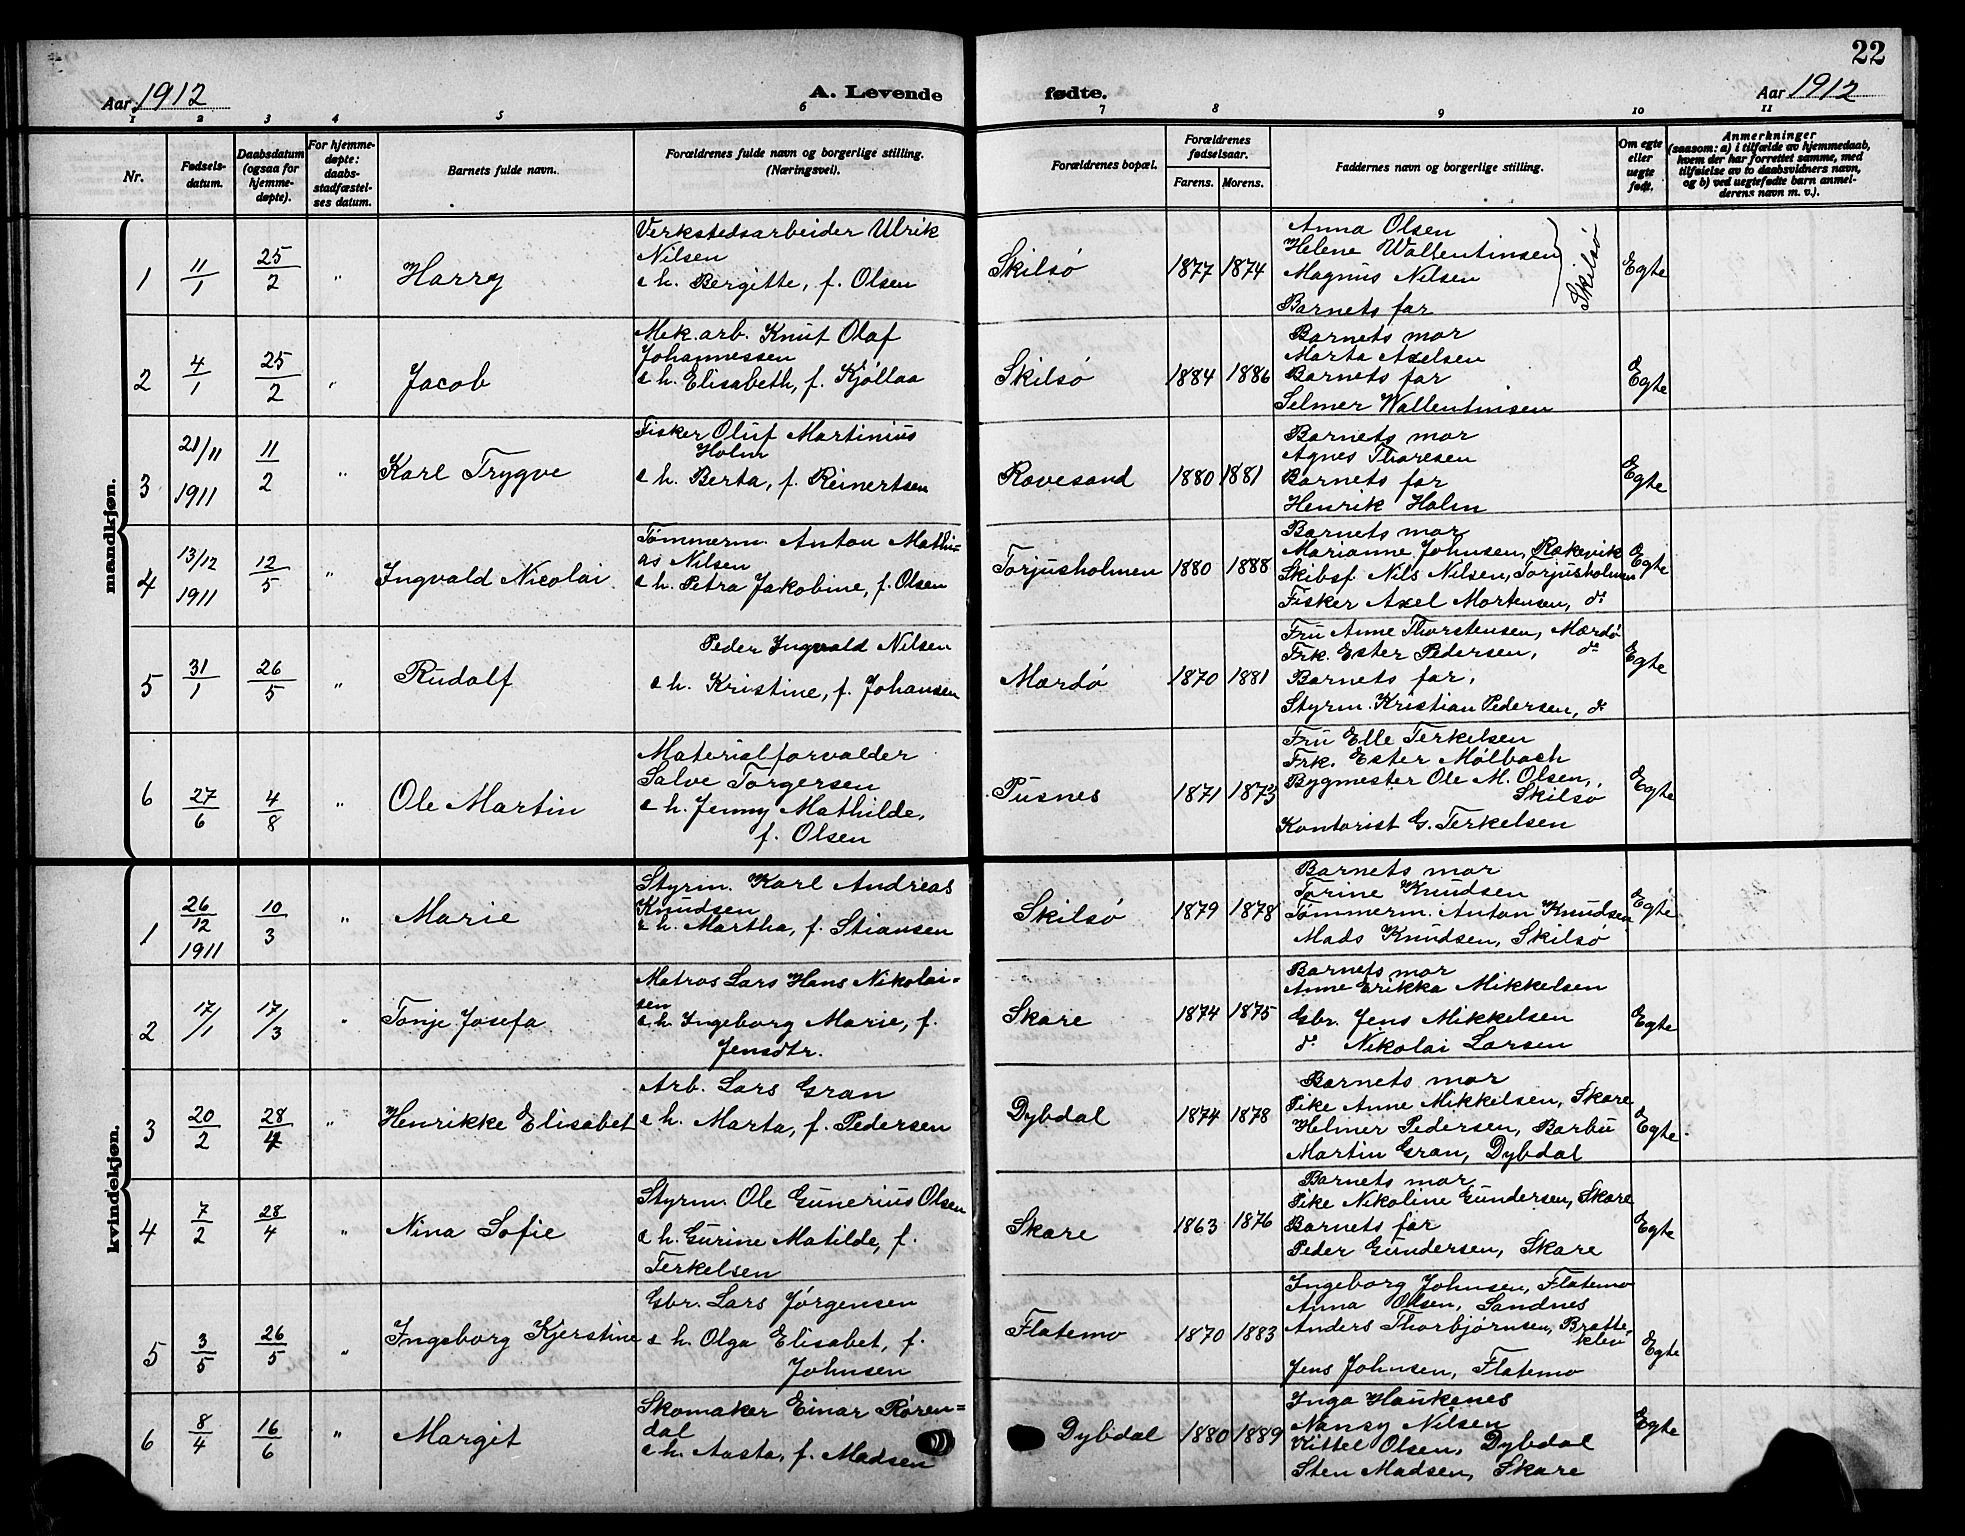 22
Aar 1912
A. Levende fødte.
Aar 1912
1 2 3 4 5 6 7 8 9 10 11
Nr.
Fødsels-
datum.
Daabsdatum
(ogsaa for
hjemme-
døpte).
For hjemme-
døpte:
daabs-
stadfæstel-
ses datum.
Barnets fulde navn.
Forældrenes fulde navn og borgerlige stilling.
(Næringsvei).
Forældrenes bopæl.
Forældrenes
fødselsaar.
Farens. Morens.
Faddernes navn og borgerlige stilling.
Om egte
eller
uegte
født.
Anmerkninger
(saasom: a) i tilfælde av hjemmedaab,
hvem der har forrettet samme, med
tilføielse av to daabsvidners navn,
og b) ved uegtefødte barn anmel-
derens navn m. v.).
mandkjøn.
1
11/1
25/2
"
Harry
Verkstedsarbeider Ulrik
Nilsen
e h. Bergitte, f. Olsen
Skilsø
1877 1874
Anna Olsen
Helene Wallentinsen
Magnus Nilsen
Barnets far
Skilsø
Egte
2
4/1
25/2
"
Jacob
Mek. arb. Knut Olaf
Johannessen
e h. Elisabeth, f. Kjøllaa
Skilsø
1884 1886
Barnets mor
Marta Axelsen
Barnets far
Selmer Wallentinsen
Egte
3
21/11
1911
11/2
"
Karl Trygve
Fisker Oluf Martinius
Holm
e h. Berta, f. Reinertsen
Ravesand
1880 1881
Barnets mor
Agnes Thoresen
Barnets far
Henrik Holm
Egte
4
13/12
1911
12/5
"
Ingvald Nicolai
Tømmerm. Anton Mathi=
as Nilsen
e h. Petra Jakobine, f. Olsen
Torjusholmen
1880 1888
Barnets mor
Marianne Johnsen, Rækevik
Skibsf. Nils Nilsen, Torjusholmen
Fisker Axel Mortensen, do
Egte
5
31/1
26/5
"
Rudolf
Peder Ingvald Nilsen
e h. Kristine, f. Johansen
Mærdø
1870 1881
Fru Anne Thorstensen, Mærdø
Frk. Ester Pedersen, do
Barnets far,
Styrm. Kristian Pedersen, do
Egte
6
27/6
4/8
"
Ole Martin
Materialforvalder
Salve Torgersen
e h. Jenny Mathilde,
f. Olsen
Pusnes
1871 1873
Fru Elle Terkelsen
Frk. Ester Mølbach
Bygmester Ole M. Olsen,
Skilsø
Kontorist G. Terkelsen
Egte
kvindekjøn.
1
26/12
1911
10/3
"
Marie
Styrm. Karl Andreas
Knudsen
e h. Martha, f. Stiansen
Skilsø
1879 1878
Barnets mor
Torine Knudsen
Tømmerm. Anton Knudsen
Mads Knudsen, Skilsø
Egte
2
17/1
17/3
"
Tonje Josefa
Matros Lars Hans Nikolai=
sen
e h. Ingeborg Marie, f.
Jensdtr.
Skare
1874 1875
Barnets mor
Anne Erikka Mikkelsen
Gbr. Jens Mikkelsen
do Nikolai Larsen
Egte
3
20/2
28/4
"
Henrikke Elisabet
Arb. Lars Gran
e h. Marta, f. Pedersen
Dybdal
1874 1878
Barnets mor
Pike Anne Mikkelsen, Skare
Helmer Pedersen, Barbu
Martin Gran, Dybdal
Egte.
4
7/2
28/4
"
Nina Sofie
Styrm. Ole Gunerius Olsen
e h. Gurine Matilde, f.
Terkelsen
Skare
1863 1876
Barnets mor
Pike Nikoline Gundersen, Skare
Barnets far
Peder Gundersen, Skare
Egte
5
3/5
26/5
"
Ingeborg Kjerstine
Gbr. Lars Jørgensen
e h. Olga Elisabet, f.
Johnsen
Flatemo
1870 1883
Ingeborg Johnsen, Flatemo
Anna Olsen, Sandnes
Anders Thorbjørnsen, Bratte-
klev
Jens Johnsen, Flatemo
Egte
6
8/4
16/6
"
Margit
Skomaker Einar Røren=
dal
e h. Aasta, f. Madsen
Dybdal
1880 1889
Inga Haukenes
Nansy Nilsen
Kittel Olsen, Dybdal
Sten Madsen, Skare
Egte